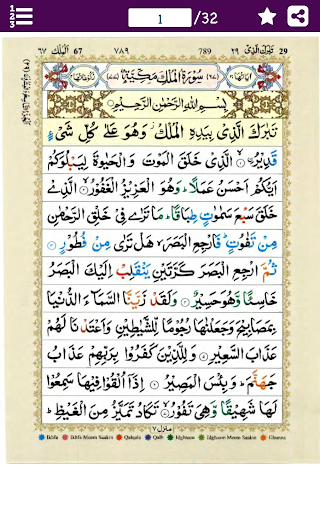 1 /32
67 الملك ٦٧ 789 ٧٨٩ تبٰرك الذی ٢٩ 29
سُوْرَةُ الْمُلْكِ مَكِّيَّةٌ
بِسْمِ اللهِ الرَّحْمٰنِ الرَّحِيْمِ
تَبٰرَكَ الَّذِىْ بِيَدِهِ الْمُلْكُ ز وَهُوَ عَلٰى كُلِّ شَىْءٍ
قَدِيْرُ ۙ الَّذِىْ خَلَقَ الْمَوْتَ وَ الْحَيٰوةَ لِيَبْلُوَكُمْ
اَيُّكُمْ اَحْسَنُ عَمَلًا ؕ وَهُوَ الْعَزِيْزُ الْغَفُوْرُ ۙ الَّذِىْ
خَلَقَ سَبْعَ سَمٰوٰتٍ طِبَاقًا ؕ مَا تَرٰى فِىْ خَلْقِ الرَّحْمٰنِ
مِنْ تَفٰوُتٍ ؕ فَارْجِعِ الْبَصَرَ ۙ هَلْ تَرٰى مِنْ فُطُوْرٍ
ثُمَّ ارْجِعِ الْبَصَرَ كَرَّتَيْنِ يَنْقَلِبْ اِلَيْكَ الْبَصَرُ
خَاسِئًا وَّهُوَ حَسِيْرٌ وَلَقَدْ زَيَّنَّا السَّمَآءَ الدُّنْيَا
بِمَصَابِيْحَ وَجَعَلْنٰهَا رُجُوْمًا لِّلشَّيٰطِيْنِ وَاَعْتَدْنَا لَهُمْ
عَذَابَ السَّعِيْرِ وَ لِلَّذِيْنَ كَفَرُوْا بِرَبِّهِمْ عَذَابُ
جَهَنَّمَ ؕ وَ بِئْسَ الْمَصِيْرُ اِذَآ اُلْقُوْا فِيْهَا سَمِعُوْا
لَهَا شَهِيْقًا وَّهِىَ تَفُوْرُ ۙ تَكَادُ تَمَيَّزُ مِنَ الْغَيْظِ ؕ
منزل ٧
Ikhfa Ikhfa Meem Saakin Qalqala Qalb Idghaam Idghaam Meem Saakin Ghunna